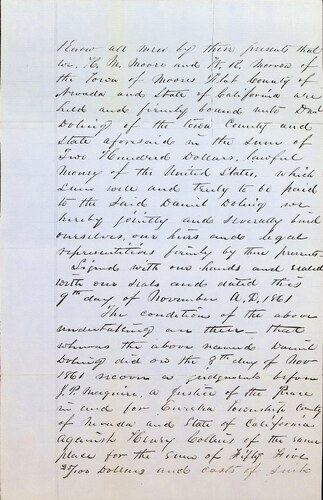 Know all men by these presents that
we H. M. Moore and W. R. Morrow of
the Town of Moores Flat County of
Nevada and State of California are
held and firmly bound unto Danl
Doling of the town County and
state aforesaid in the sum of
Two Hundred Dollars, lawful
money of the United States, which
sum well and truly to be paid
to the said Daniel Doling we
hereby jointly and severally bind
ourselves, our heirs and legal
representitives firmly by these presents
Signed with our hands and sealed
with our seals and dated this
9th day of November A.D. 1861
The conditions of the above
undertaking are these that
whereas the above named Daniel
Doling did on the 8th day of Nov
1861 recover a judgment before
J. P. Maguire, a Justice of the Peace
in and for Eureka township County
of Nevada and State of California
Against Henry Collins of the same
place for the sum of Fifty Five
/100 Dollars and costs of suit